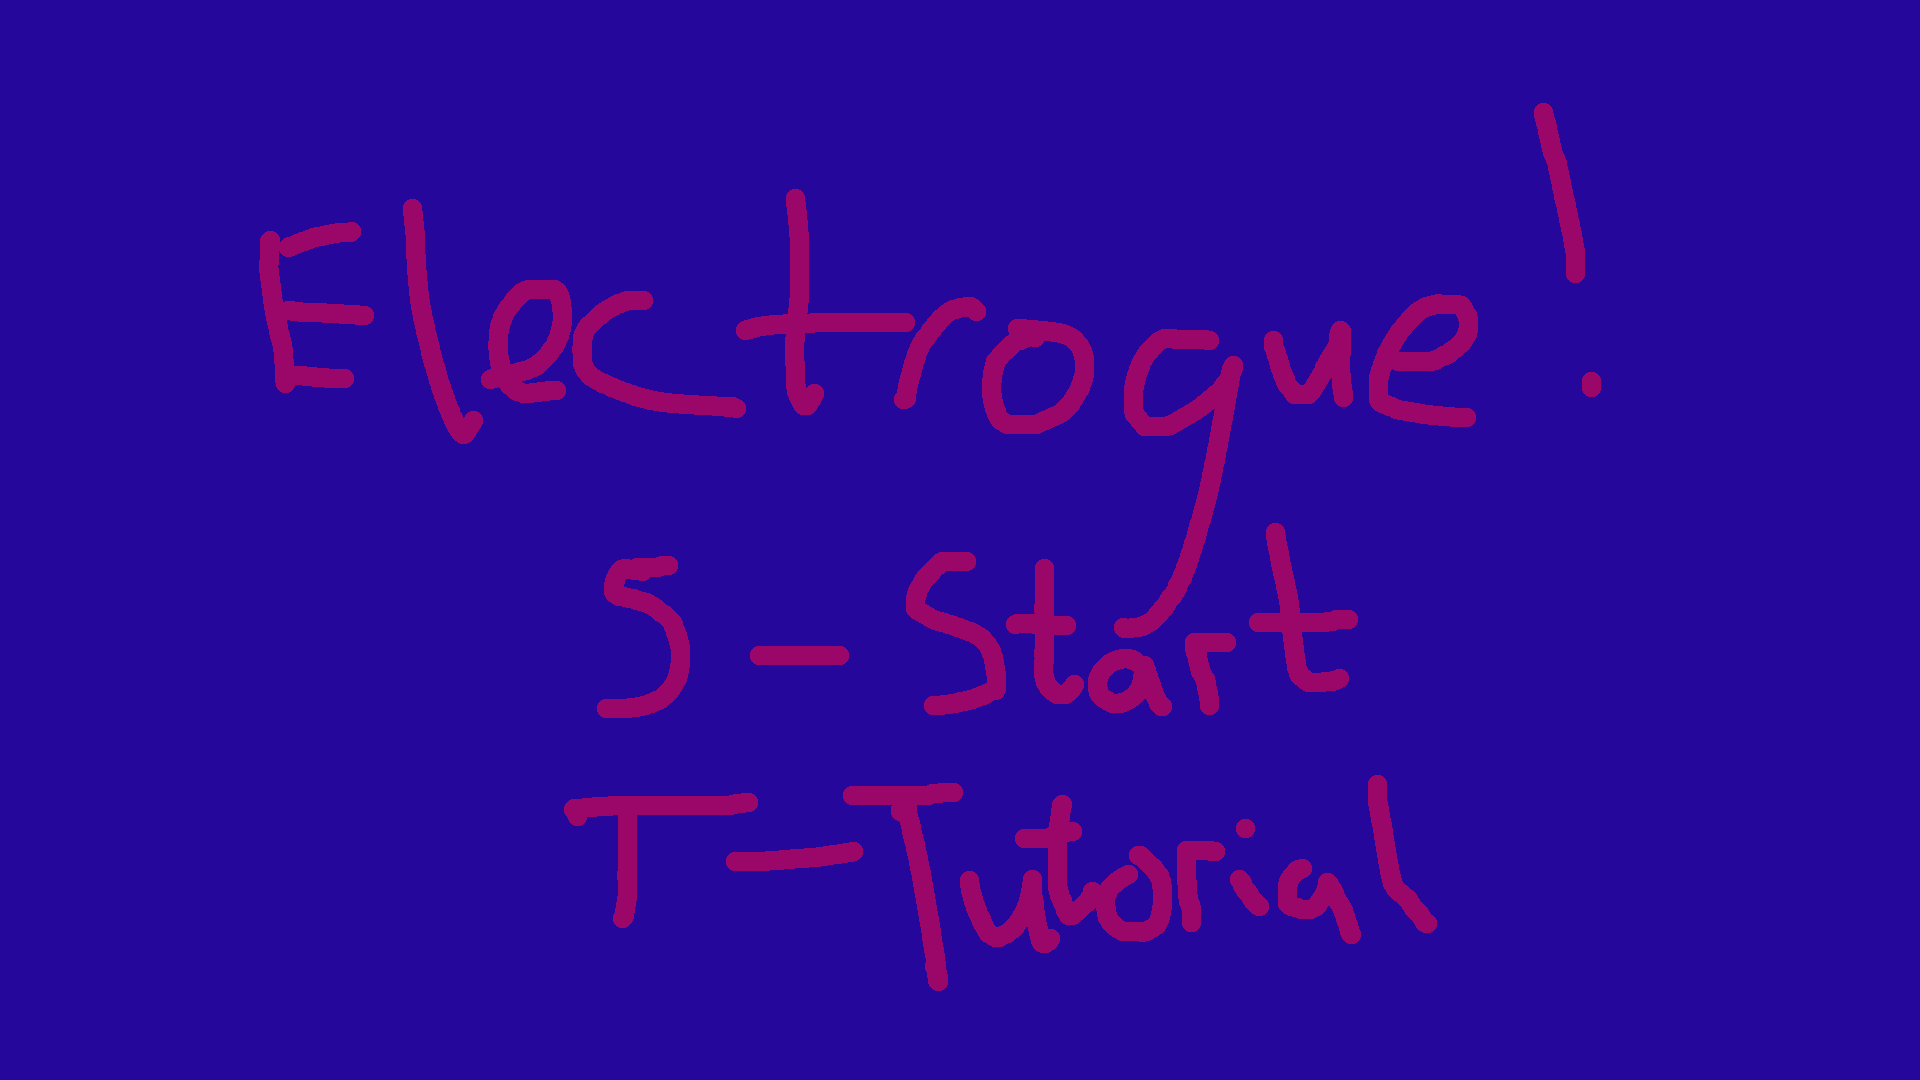 Electrogue!
S - Start
T - Tutorial